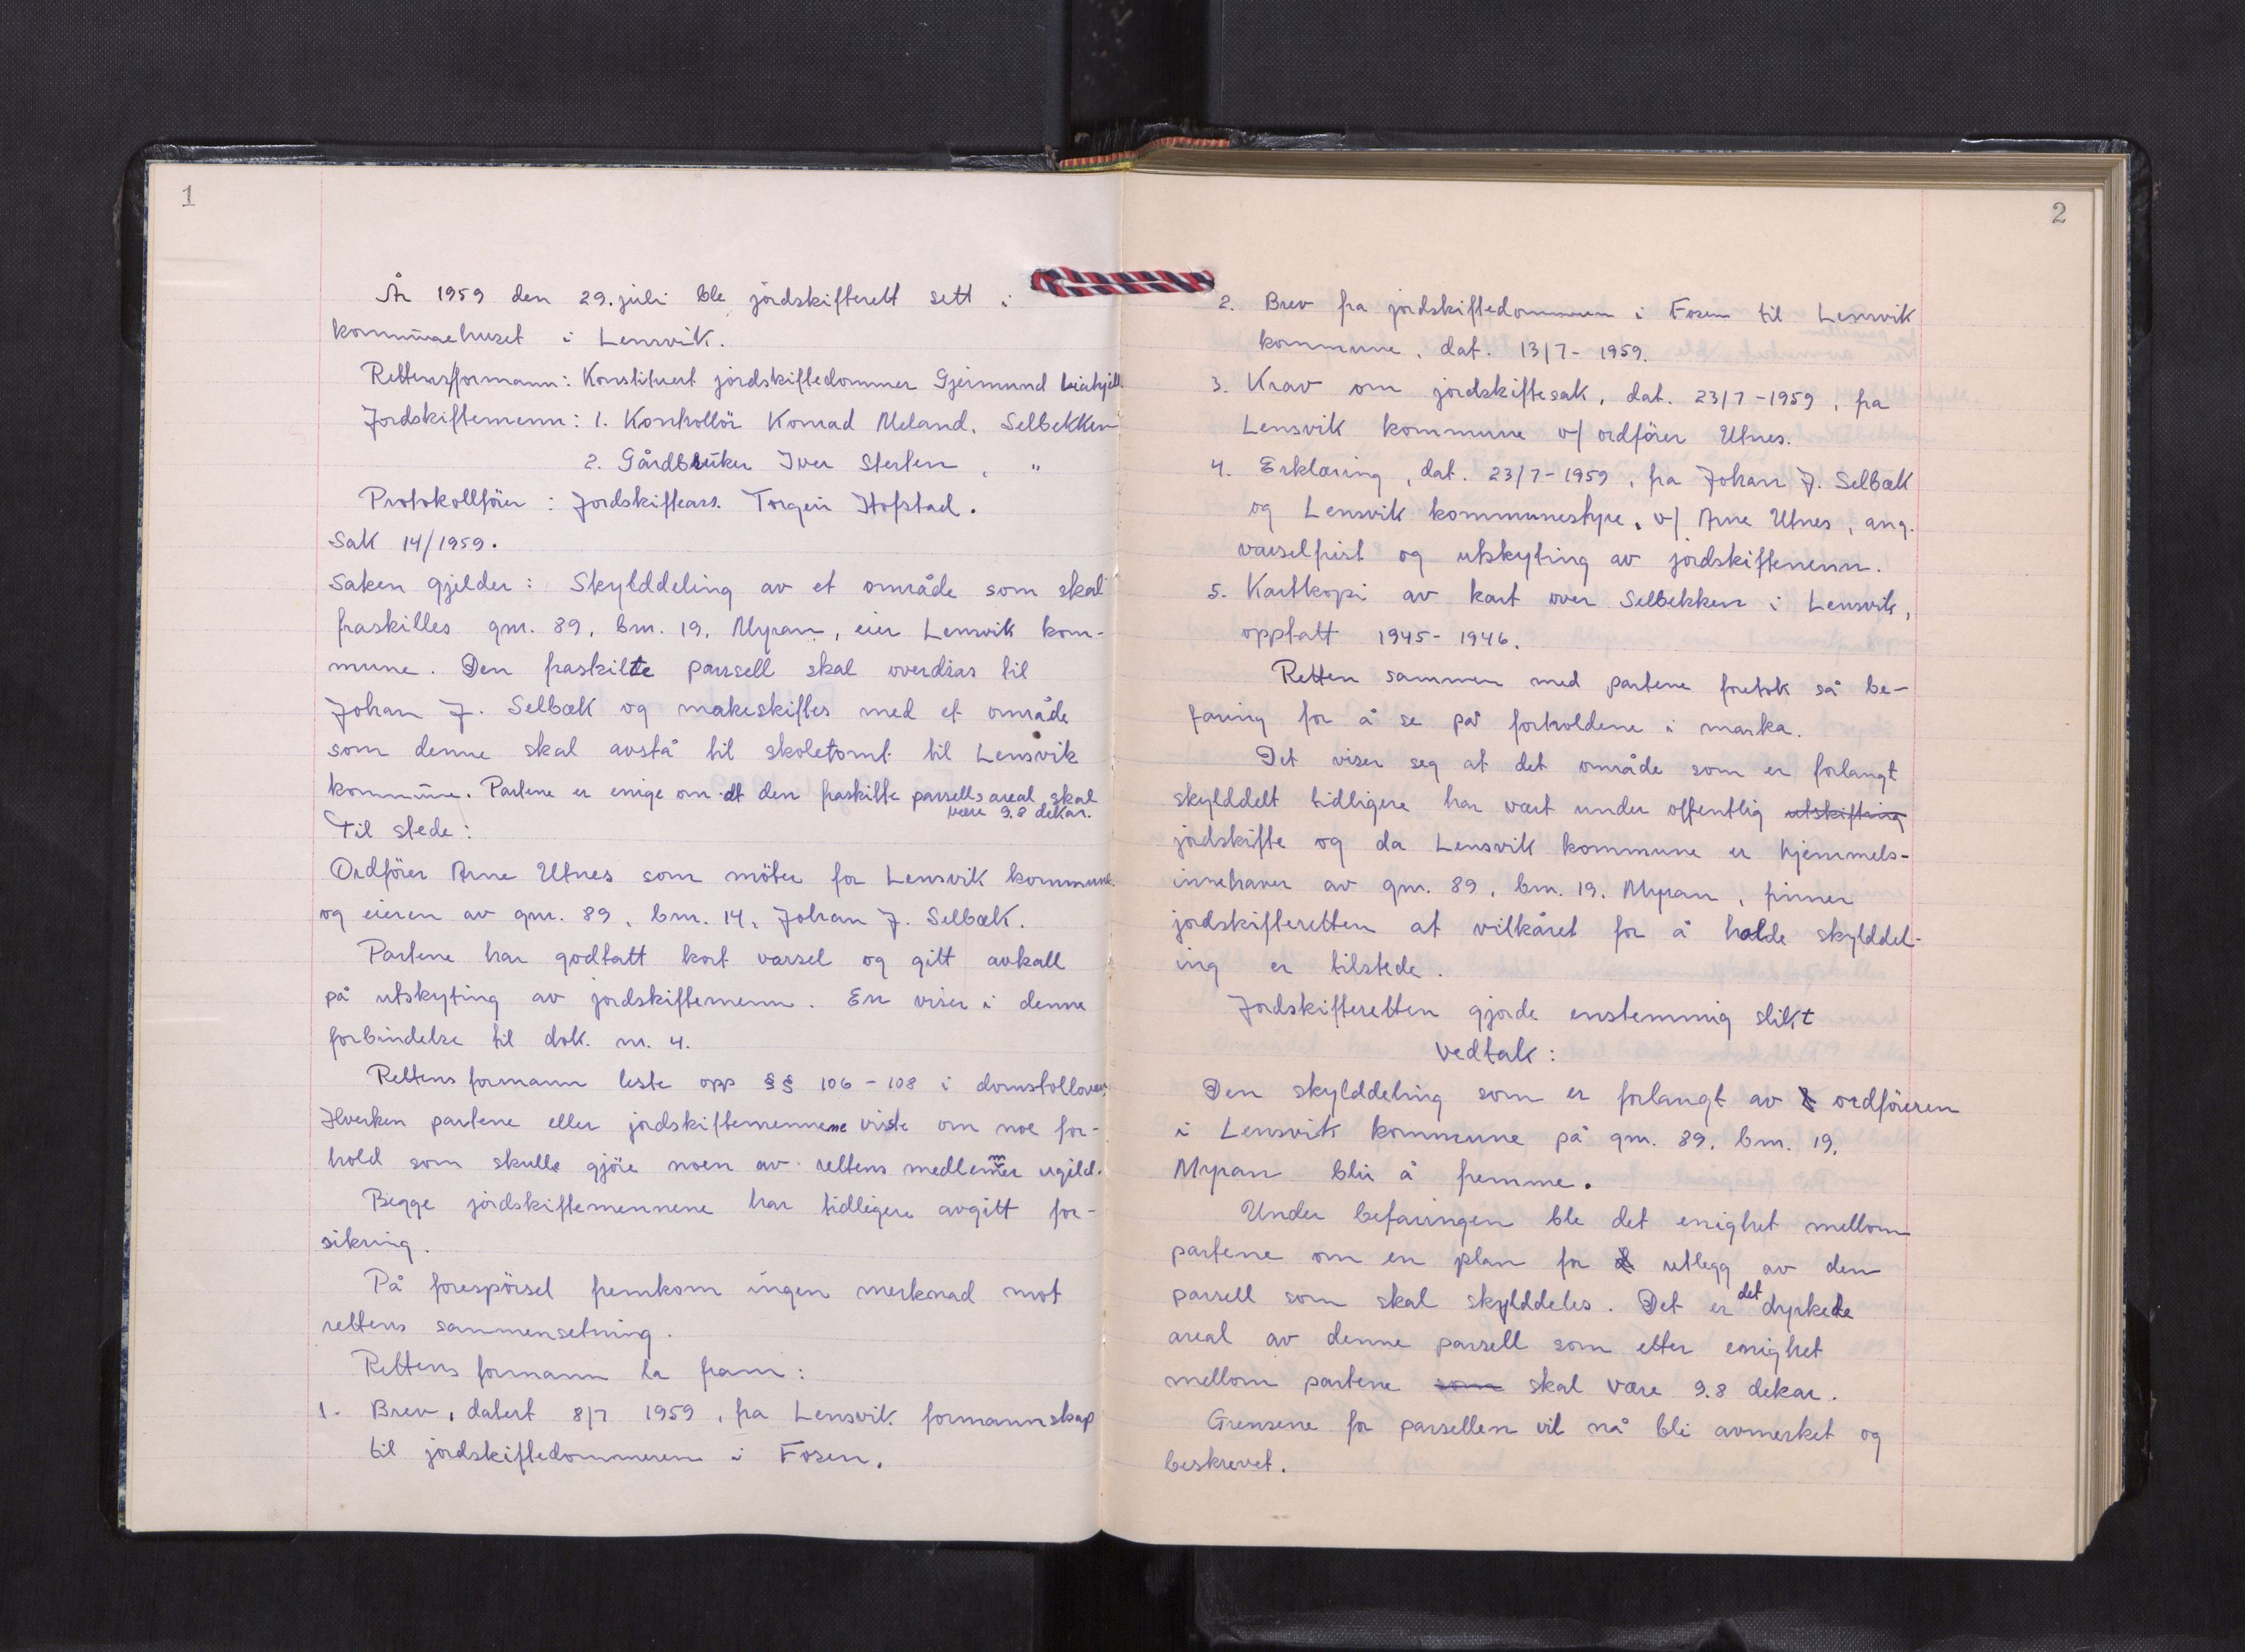 1
År 1959 den 29. juli ble jordskifterett sett i
kommunehuset i Lensvik.
Rettens formann: Konstituert jordskiftedommer Gjermund
Jordskiftemenn: 1. Kontrollör Konrad Meland, Selbekken
2. Gårdbruker Iver Sterten, "
Protokollförer: Jordskifteass. Torgeir Hofstad.
Sak 14/1959.
Saken gjelder: Skylddeling av et område som skal
fraskilles gnr. 89, bnr. 19, Myran, eier Lensvik kom-
mune. Den fraskilte parsell skal overdras til
Johan J. Selbæk og makeskiftes med et område
som denne skal avstå til skoletomt til Lensvik
kommune. Partene er enige om at den fraskilte parsells areal skal
være 9.8 dekar.
Til stede:
Ordförer Arne Utnes som möter for Lensvik kommune.
og eieren av gnr. 89, bnr. 14, Johan J. Selbæk.
Partene har godtatt kort varsel og gitt avkall
på utskyting av jordskiftemenn. En viser i denne
forbindelse til dok. nr. 4.
Rettens formann leste opp §§ 106-108 i domstolloven.
Hverken partene eller jordskiftemennene visste om noe for-
hold som skulle gjöre noen av rettens medlemmer ugild.
Begge jordskiftemennene har tidligere avgitt for-
sikring.
På forespörsel fremkom ingen merknad mot
rettens sammensetning.
Rettens formann la fram:
1. Brev, datert 8/7 1959, fra Lensvik formannskap
til jordskiftedommeren i Fosen.
2
2. Brev fra jordskiftedommeren i Fosen til Lensvik
kommune, dat. 13/7-1959.
3. Krav om jordskiftesak, dat. 23/7-1959, fra
Lensvik kommune v/ ordförer Utnes.
4. Erklæring, dat. 23/7-1959, fra Johan J. Selbæk
og Lensvik kommunestyre, v/ Arne Utnes, ang.
varselfrist og utskyting av jordskiftemenn.
5. Kartkopi av kart over Selbekken i Lensvik,
opptatt 1945-1946.
Retten sammen med partene foretok så be-
faring for å se på forholdene i marka.
Det viser seg at det område som er forlangt
skylddelt tidligere har vært under offentlig utskifting
jordskifte og da Lensvik kommune er hjemmels-
innehaver av gnr. 89, bnr. 19, Myran, finner
jordskifteretten at vilkåret for å holde skylddel-
ing er tilstede.
Jordskifteretten gjorde enstemmig slikt
vedtak:
Den skylddeling som er forlangt av ordföreren
i Lensvik kommune på gnr. 89, bnr. 19,
Myran blir å fremme.
Under befaringen ble det enighet mellom
partene om en plan for utlegg av den
parsell som skal skylddeles. Det er det dyrkede
areal av denne parsell som etter enighet
mellom partene som skal være 9.8 dekar.
Grensene for parsellen vil nå bli avmerket og
beskrevet.